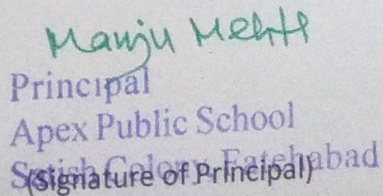 Manju Mehta
Principal
Apex Public School
Colony Fatehabad
(Signature of Principal)